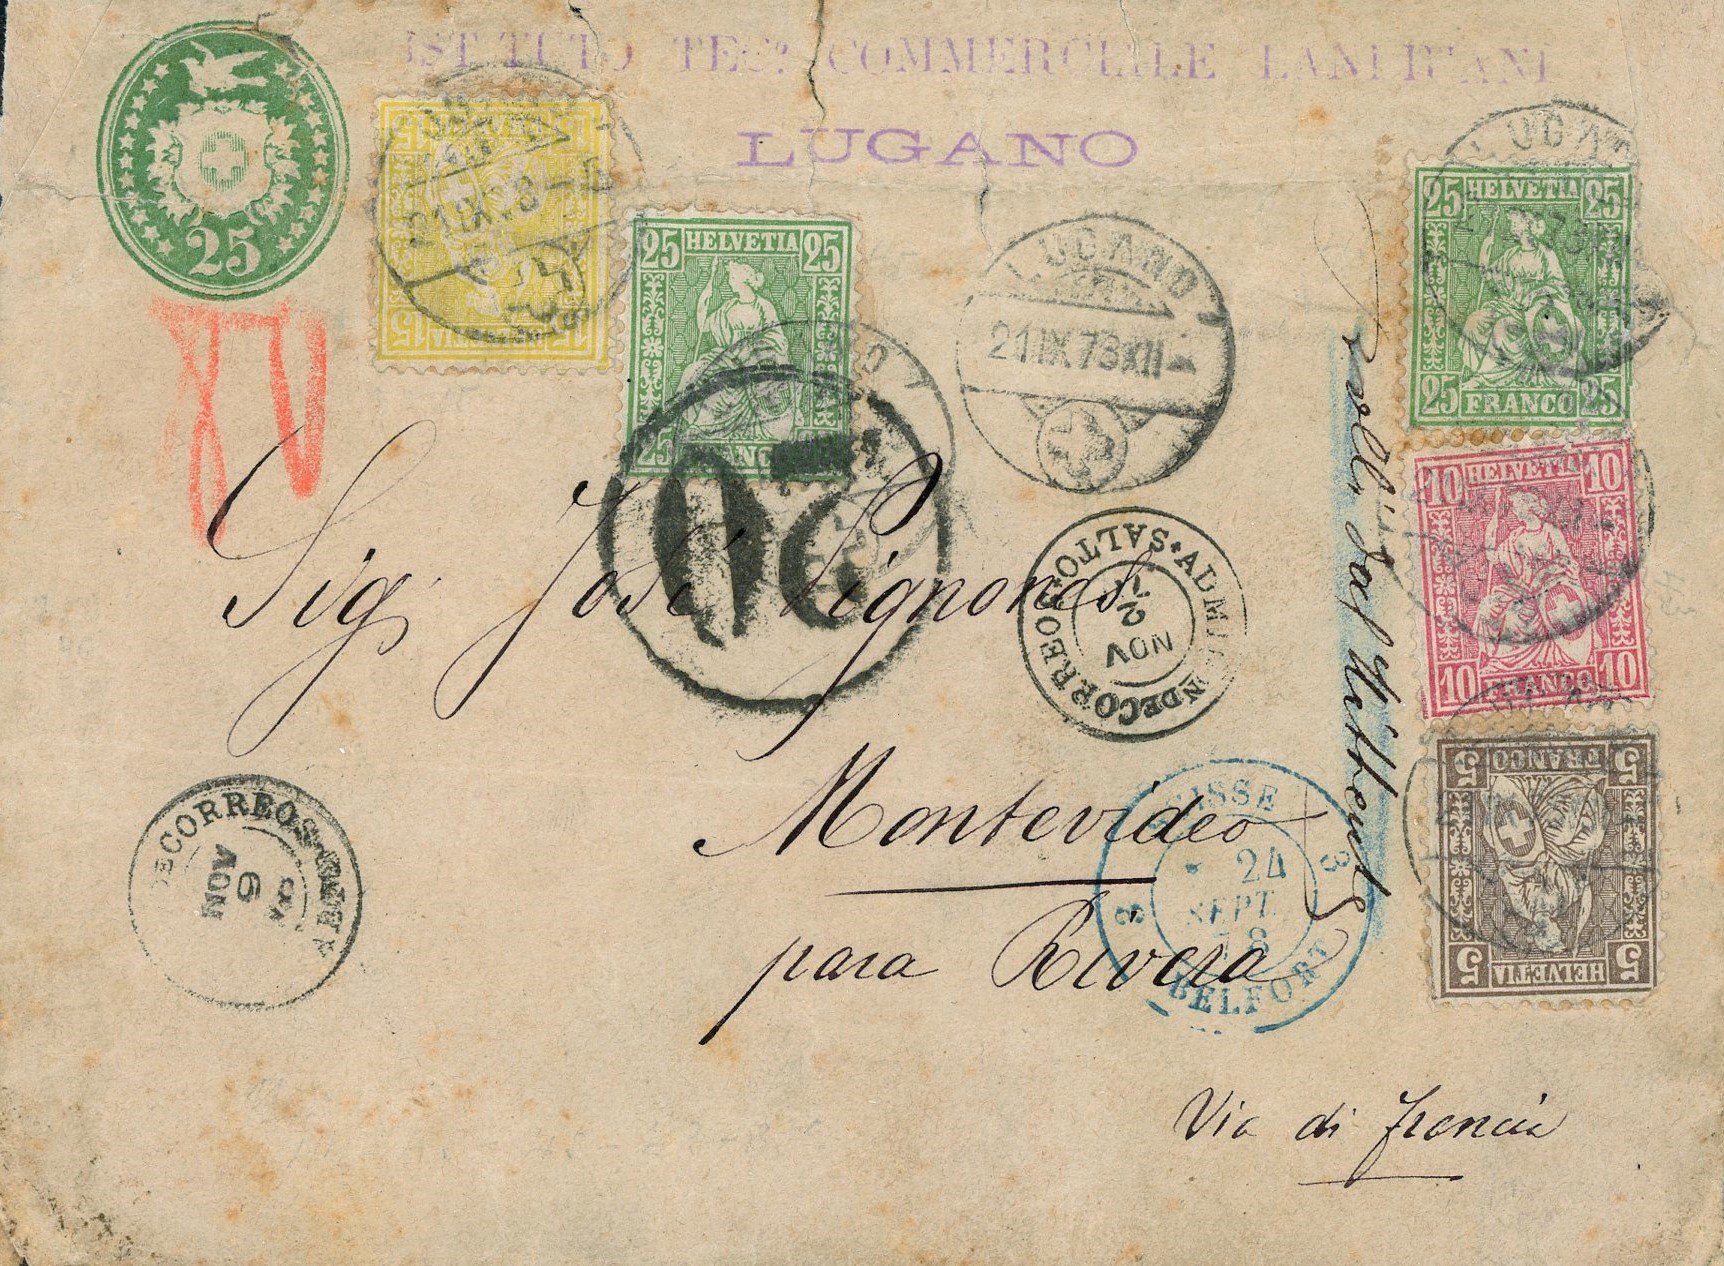 ISTITUTO TEC.º COMMERCIALE LANDRIANI
LUGANO
25
15 HELVETIA 15
15 15
25 HELVETIA 25
25 FRANCO
LUGANO
21.IX.78.XII
LUGANO
25 HELVETIA 25
25 FRANCO 25
10 HELVETIA 10
10 FRANCO 10
5 FRANCO 5
5 HELVETIA 5
20
Sig. José Pignonas
Montevideo
para Rivera
Via di francia
ADMON DE CORREOS SALTO
NOV 2
DE CORREOS
NOV 9
SUISSE
3 3
24
SEPT.
78
BELFORT